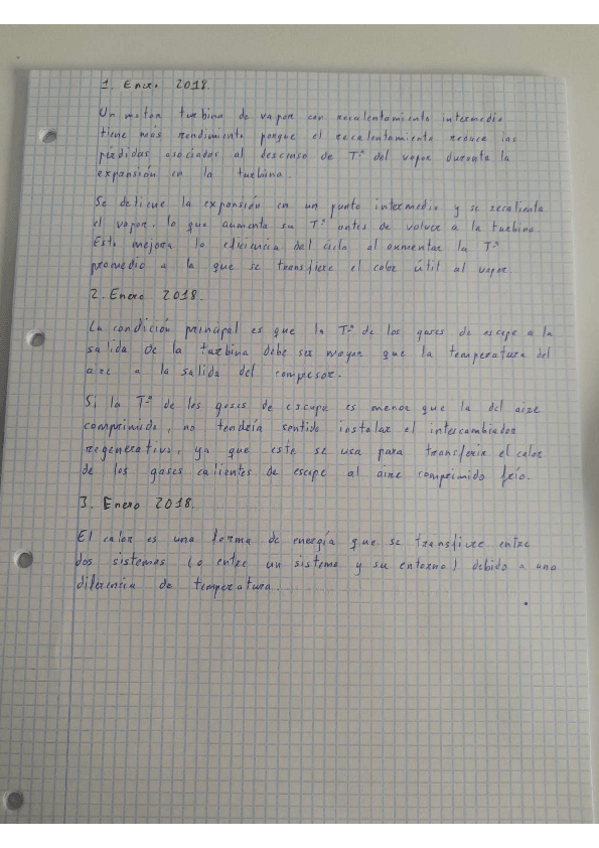 1. Enero 2018.
Un motor turbina de vapor con recalentamiento intermedio
tiene más rendimiento porque el recalentamiento reduce las
pérdidas asociadas al descenso de Tª del vapor durante la
expansión en la turbina.
Se detiene la expansión en un punto intermedio y se recalienta
el vapor, lo que aumenta su Tª antes de volver a la turbina.
Esto mejora la eficiencia del ciclo al aumentar la Tª
promedio a la que se transfiere el calor útil al vapor.
2. Enero 2018.
La condición principal es que la Tª de los gases de escape a la
salida de la turbina debe ser mayor que la temperatura del
aire a la salida del compresor.
Si la Tª de los gases de escape es menor que la del aire
comprimido, no tendría sentido instalar el intercambiador
regenerativo, ya que este se usa para transferir el calor
de los gases calientes de escape al aire comprimido frío.
3. Enero 2018.
El calor es una forma de energía que se transfiere entre
dos sistemas (o entre un sistema y su entorno) debido a una
diferencia de temperatura.